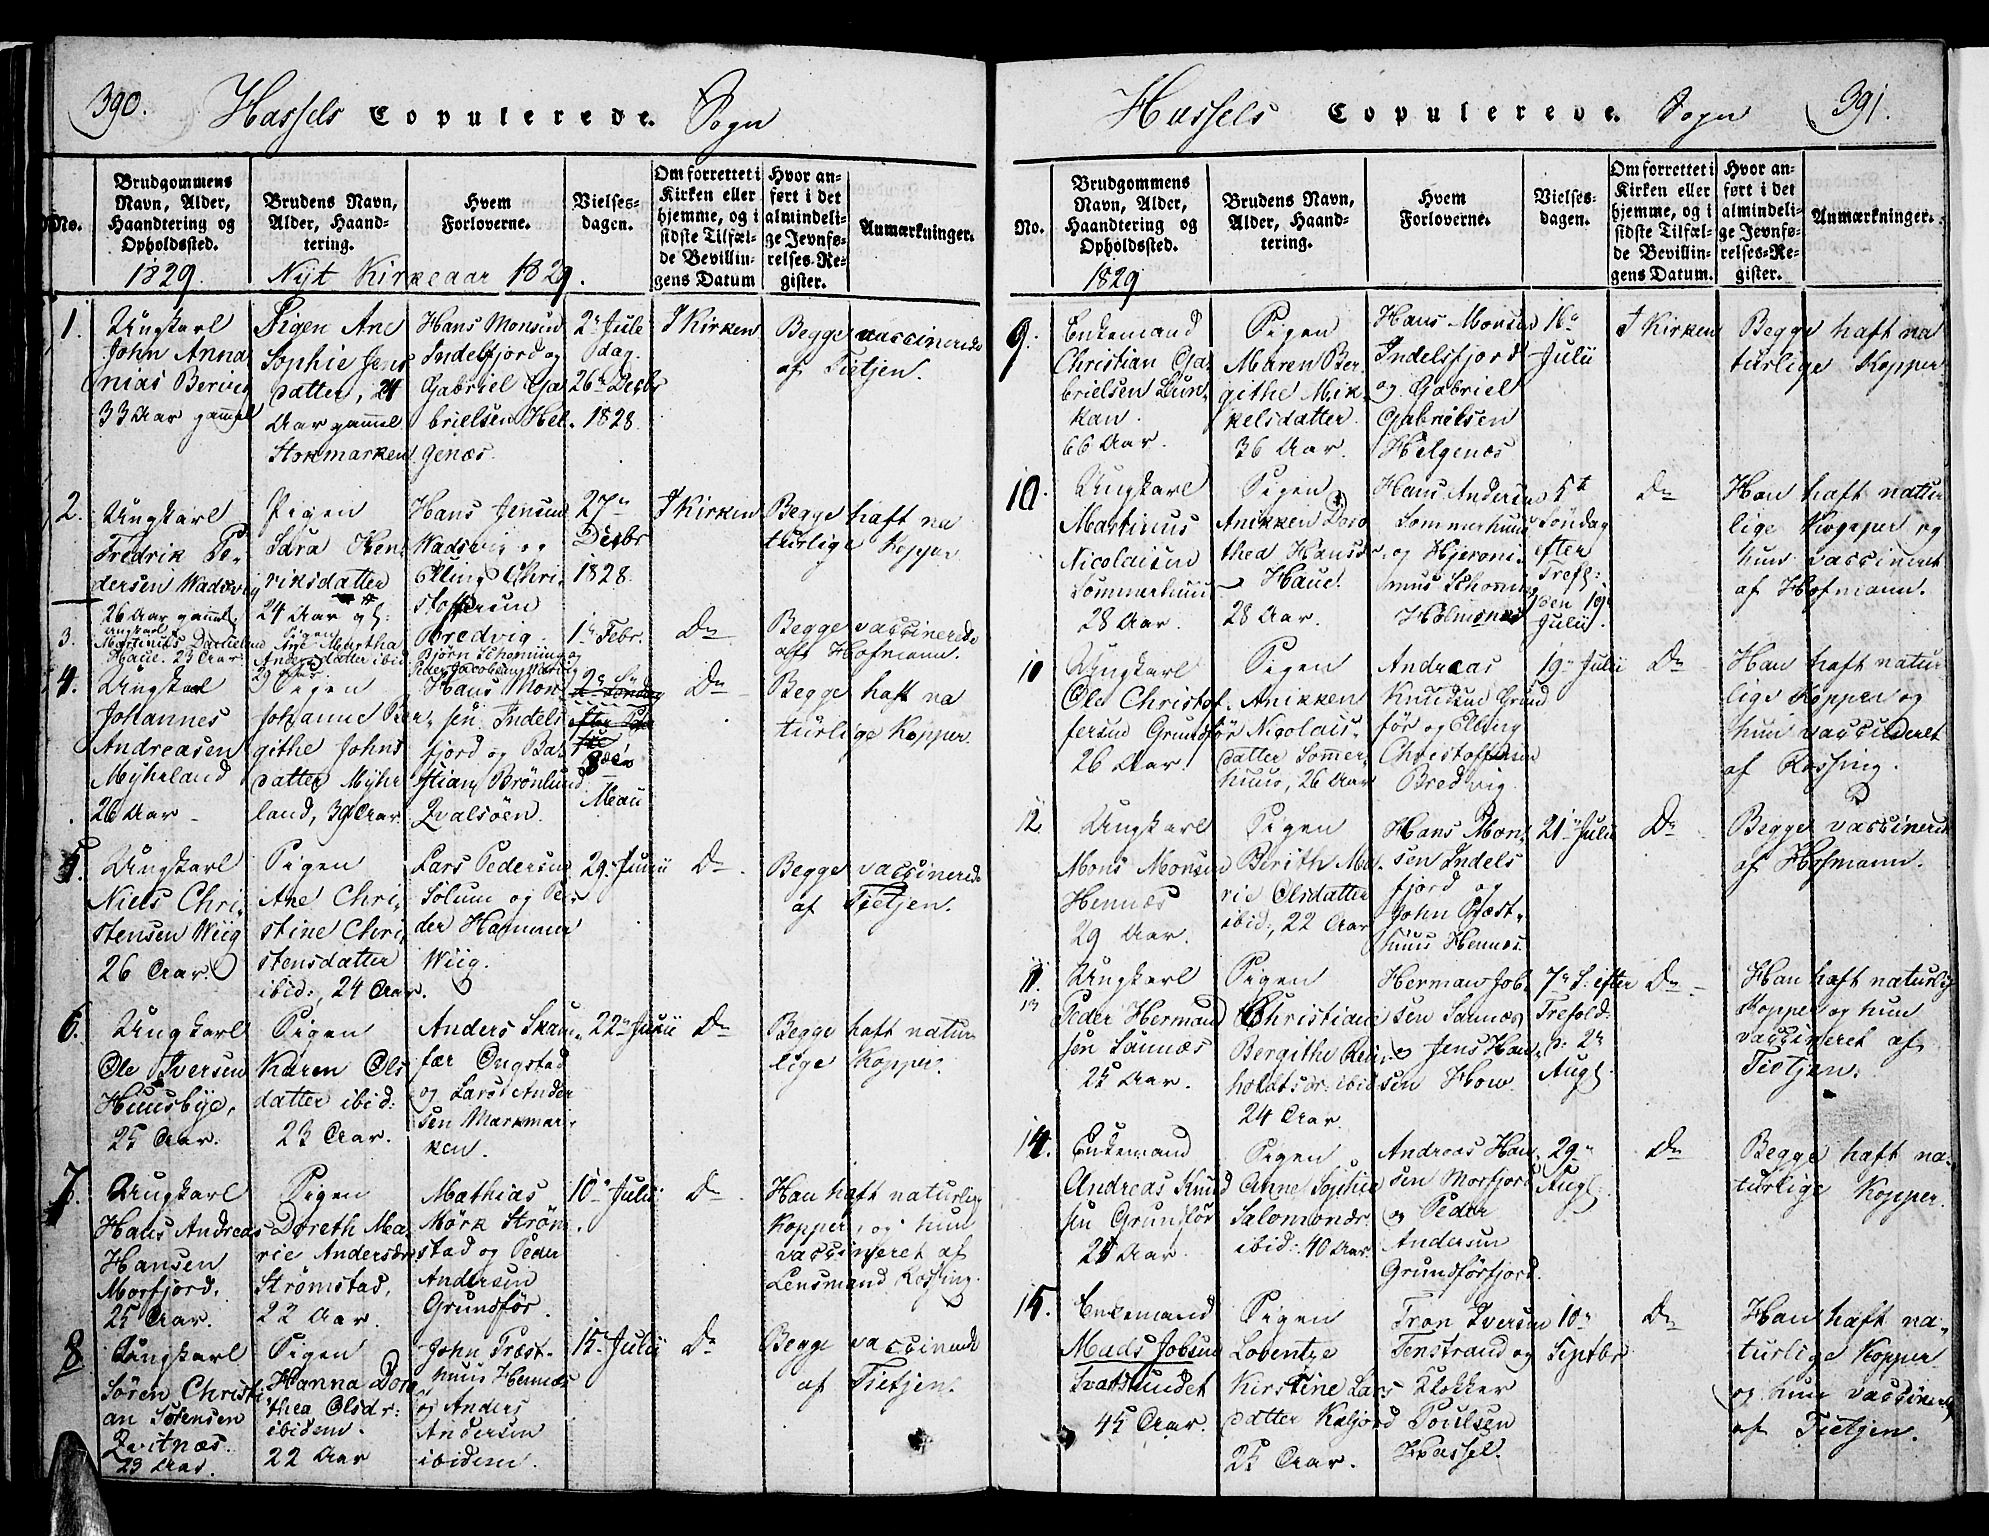 390. Hassels Copulerede. Sogn
No.
Brudgommens Navn, Alder, Haandtering og Opholdssted.
Brudens Navn, Alder, Haandtering.
Hvem Forloverne.
Vielsesdagen.
Om forrettet i Kirken eller hjemme, og i sidste Tilfælde Bevillingens Datum
Hvor anført i det almindelige Jevnførelses-Register.
Anmærkninger.
1829. Nyt Kirkeaar 1829.
1.
Ungkarl
John Anna
nias
33 Aar gammel
Pigen Ane
Sophie Jens
datter, 24
Aar gammel
Stokmarken
Hans Monsen
Indelfjord og
Gabriel Ga
brielsen Hel
genæs.
2n Jule
dag.
26n Decbr
1828.
I Kirken
Begge vaccinerede
af Tietjen.
2.
Ungkarl
Fredrik Pe-
dersen Wadsvig
26 Aar gammel.
Pigen
Sara Hen
riksdatter
24 Aar gl:
Hans Jensen
Wadsvig og
Elling Chri-
stoffersen
Bredvig.
27n
Decbr
1828.
I Kirken
Begge haft na
turlige Kopper
3.
Ungkarl
Martinus Danielsen
Haue. 23 Aar
Pigen
Ane Martha
Andersdatter ibid
29 Aar.
Björn Schoning og
Peder Jacobsen
1n Febr.
Do
Begge vaccinerede
af Hofmann.
4.
Ungkarl
Johannes
Andreasen
Myhrland
26 Aar
Pigen
Johanne Ber-
githe Johns
datter Myhr
land, 39 Aar
Hans Mon
sen Indels
fjord og Ba-
stian Brönlund
Qvalsöen.
Do
Begge haft na
turlige Kopper
5.
Ungkarl
Niels Chri-
stensen Wiig
26 Aar.
Pigen
Ane Chri-
stine Chri-
stensdatter
ibid:, 24 Aar.
Lars Pedersen
Solum og Pe-
der Hammer
Wiig.
29. Junii
Do
Begge vaccinerede
af Tietjen.
6.
Ungkarl
Ole Iversen
Huusbye,
25 Aar.
Pigen
Karen Ols
datter ibid:
23 Aar.
Anders Skau-
fær Ongstad
og Lars Ander
sen Markmar-
ken.
22n Junii
Do
Begge haft natur
lige Kopper.
7.
Ungkarl
Hans Andreas
Hansen
Morfjord.
25 Aar.
Pigen
Doreth Ma-
rie Andersdr
Strömstad,
22 Aar.
Mathias
Mörk Ström
stad og Peder
Andersen
Grundför.
10n Julii
Do
Han haft naturlige
Kopper, og hun
vaccineret af
Lensmand Rossing.
8
Ungkarl
Sören Christi
an Sörensen
Qvitnæs.
23 Aar.
Pigen
Hanna Doro
thea Olsdr:
ibidem.
22 Aar
John Præst-
huus Hennæs
og Anders
Andersen
ibidem.
15. Julii
Do
Begge vaccinerede
af Tietjen.
Hassels Copulerede. Sogn 391.
No.
Brudgommens Navn, Alder, Haandtering og Opholdssted.
Brudens Navn, Alder, Haandtering.
Hvem Forloverne.
Vielsesdagen.
Om forrettet i Kirken eller hjemme, og i sidste Tilfælde Bevillingens Datum.
Hvor anført i det almindelige Jevnførelses-Register.
Anmærkninger.
1829
9.
Enkemand
Christian Ga-
brielsen Dun-
kan.
66 Aar.
Pigen
Maren Ber-
githe Mik-
kelsdatter
36 Aar.
Hans Monsen
Indelsfjord
og Gabriel
Gabrielsen
Helgenæs
16n
Julii
I Kirken
Begge haft na
turlige Kopper
10.
Ungkarl
Martinus
Nicolaisen
Sommerhuus
28 Aar.
Pigen
Anikken Doro
thea Hansdr.
Haue.
28 Aar.
Hans Andersen
Sommerhuus
og Hjeroni-
mus Schoning
Holmsnæs
5te
Söndag
efter
Trefl:
den 19
Julii.
Do
Han haft natur
lige Kopper og
hun vaccineret
af Hofmann.
Ungkarl
Ole Christof-
fersen Grundför
26 Aar.
Pigen
Anikken
Nicolais-
datter Sommer-
huus, 26 Aar
Andreas
Knudsen Grund
för og Elling
Christoffersen
Bredvig
19n Julii
Do
Han haft natur
lige Kopper og
hun vaccineret
af Rossing.
12
Ungkarl
Mons Monsen
Hennæs
29 Aar.
Pigen
Berith Ma-
rie Olsdatter
ibid:, 22 Aar
Hans Mon-
sen Indels
fjord og
John Præst-
huus Hennæs.
21n Julii
Do
Begge vaccinerede
af Hofmann.
13
Ungkarl
Peder Herman
sen Sannæs
25 Aar.
Pigen
Christiane
Bergithe Rein-
holdtsdr. ibid
24 Aar.
Herman Job-
sen Sannæs
og Jens Han-
sen How.
7n S: efter
Trefold:
p: 2n
Augl.
Do
Han haft naturlig
Kopper og hun
vaccineret af
Tietjen.
14.
Enkemand
Andreas Knud
sen Grundför
Aar.
Pigen
Anne Sophie
Salomonsdr.
ibid: 40 Aar.
Andreas Han-
sen Morfjord
og Peder
Andersen
Grundförfjord.
29n
Augl.
Do
Begge haft na-
turlige Kopper.
15.
Enkemand
Mads Jobsen
Svartsundet
45 Aar.
Pigen
Lobentze
Kirstine Lars
datter Kaljord
25 Aar.
Tron Iversen
Tenstrand og
Klokker
Poulsen
Hassel.
10n
Septbr
Do
Han haft na-
turlige Kopper
og hun vaccineret
af Tietjen.